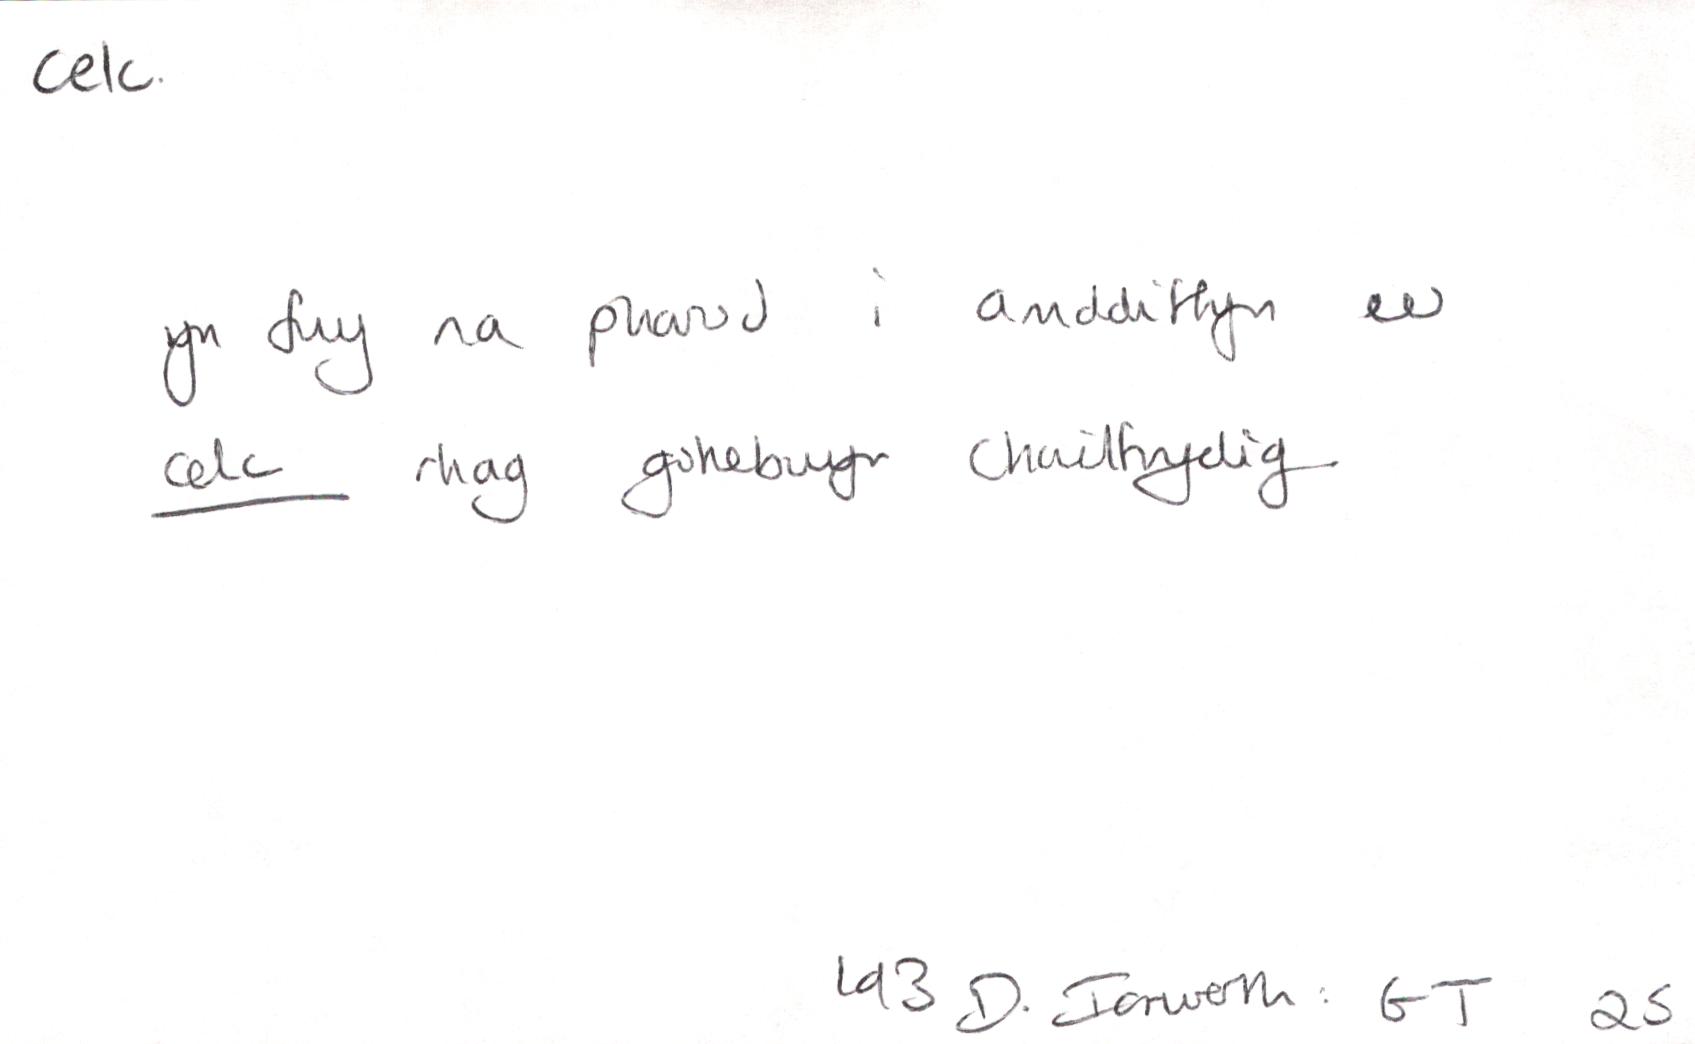 celc.
yn fwy na pharod i amddiffyn eu
celc rhag gohebwyr chwilfrydig
D. Iorwerth: GT 25